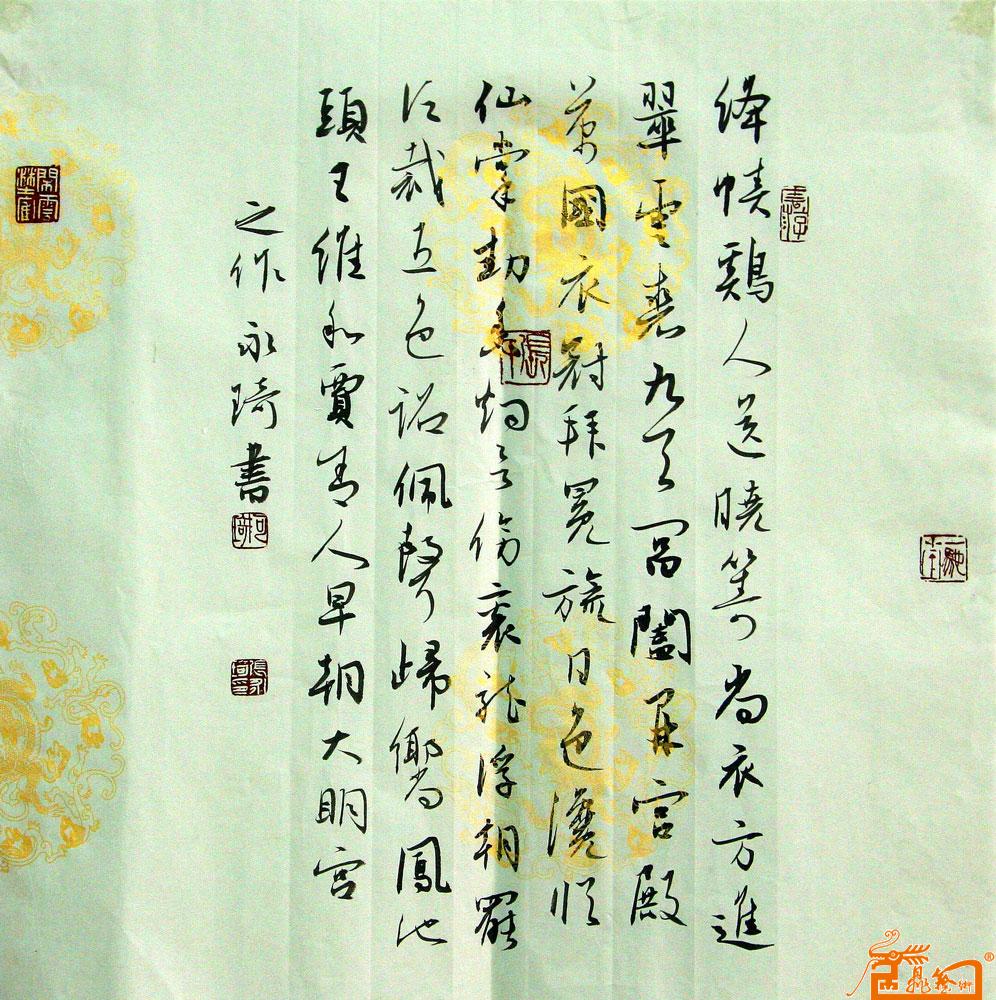 絳幘鷄人送曉籌尚衣方進
翠雲裘九天閶闔開宮殿
萬國衣冠拜冕旒日色纔臨
仙掌動香烟欲傍袞龍浮朝罷
須裁五色詔佩聲歸嚮鳳池
頭王維和賈舍人早朝大明宮
之作永琦書